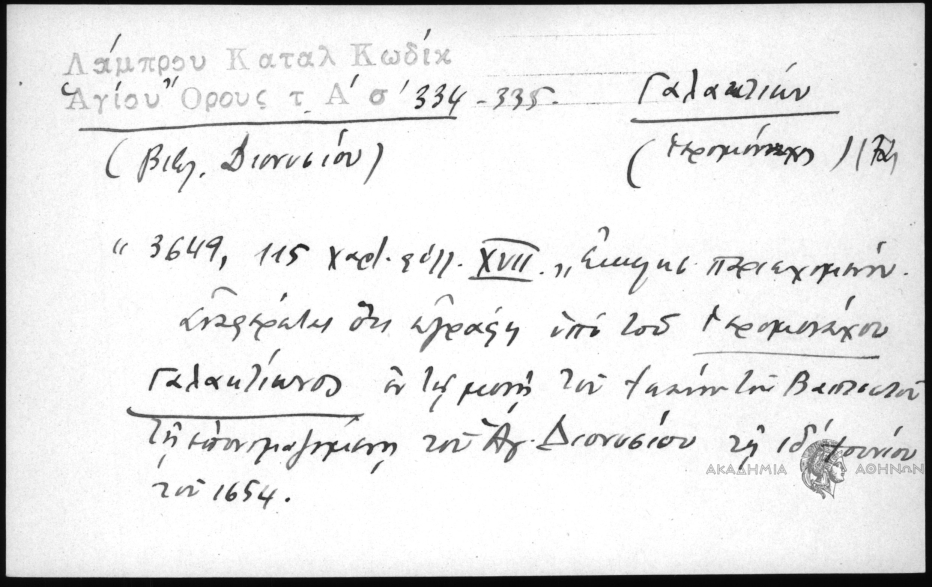 Λάμπρου Καταλ Κωδίκ
Ἁγίου Ὄρους τ. Α΄ σ΄ 334 - 335.
Γαλακτίων
(Βιβλ. Διονυσίου)
(ἱερομόναχος)
" 3649, 115 χαρτ. φύλλ. XVII. „ περιεχομένου.
Ἀναφέρεται ὅτι ἐγράφη ὑπὸ τοῦ ἱερομονάχου
Γαλακτίωνος ἐν τῇ μονῇ τοῦ Ἰωάννου τοῦ Βαπτιστοῦ
τῇ ἐπονομαζομένῃ τοῦ Ἁγ. Διονυσίου τῇ ιδ΄ Ἰουνίου
τοῦ 1654.
ΑΚΑΔΗΜΙΑ ΑΘΗΝΩΝ